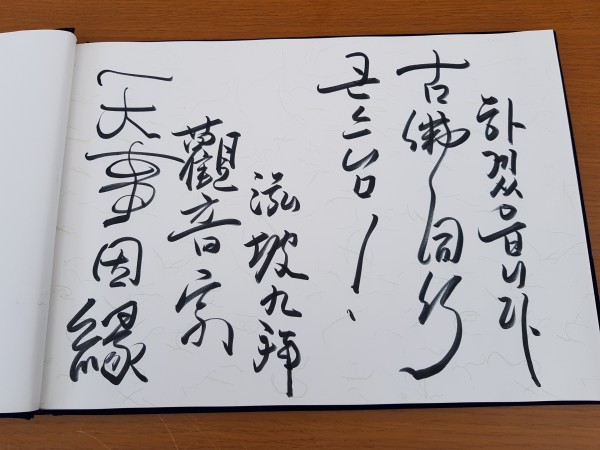 一大事因緣
觀音
泓坡九拜
큰스님!
古佛同行
하겠습니다